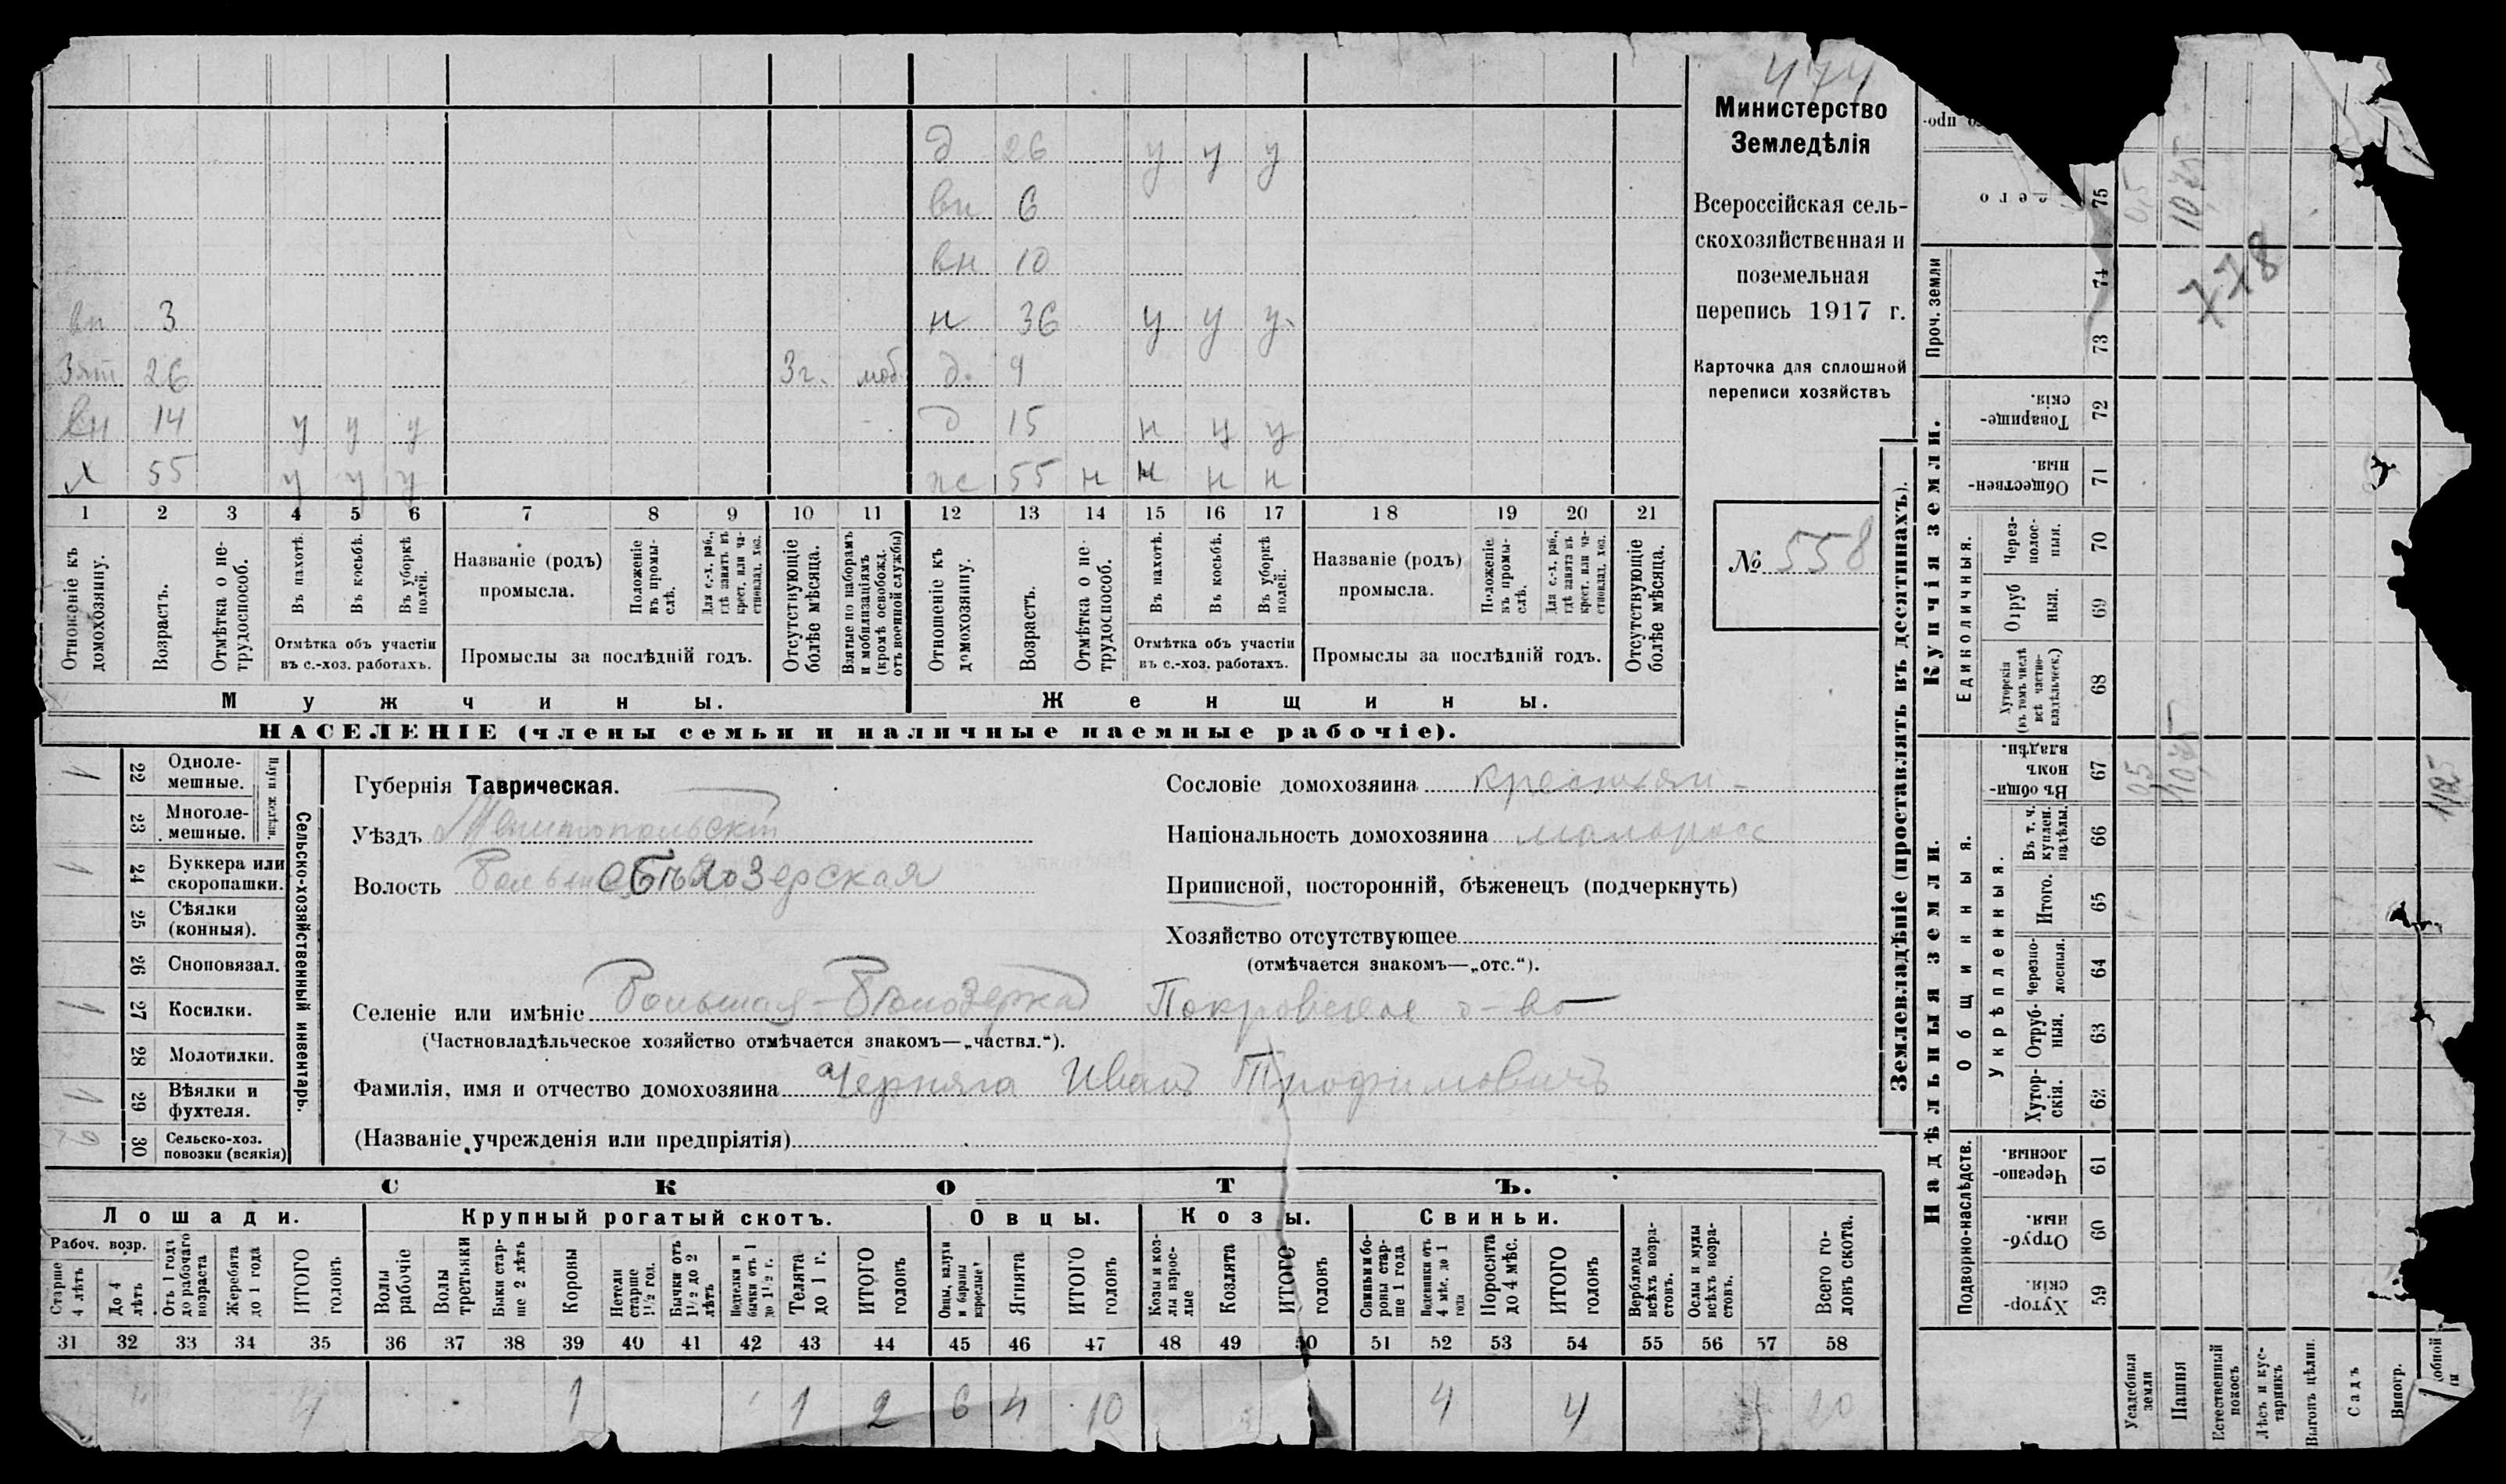 474
Министерство
Земледѣлія
Всероссійская сель-
скохозяйственная и
поземельная
перепись 1917 г.
Карточка для сплошной
переписи хозяйствъ
№ 558
д 26 у у у
вн 6
вн 10
вн 3 н 36 у у у
Зят 26 3г. моб. д. 9
вн 14 у у у д 15 н у у
х 55 у у у ж 55 н н н н
1 2 3 4 5 6 7 8 9 10 11 12 13 14 15 16 17 18 19 20 21
Отношеніе къ домохозяину.
Возрастъ.
Отмѣтка о не-трудоспособ.
Въ пахотѣ.
Въ косьбѣ.
Въ уборкѣ полей.
Отмѣтка объ участіи
въ с.-хоз. работахъ.
Названіе (родъ)
промысла.
Положеніе въ промы-слѣ.
Для с.-х. раб., гдѣ занятъ въ крест. или ча-стновлад. хоз.
Промыслы за послѣдній годъ.
Отсутствующіе болѣе мѣсяца.
Взятые по наборамъ и мобилизаціямъ (кромѣ освобожд. отъ военной службы)
Отношеніе къ домохозяину.
Возрастъ.
Отмѣтка о не-трудоспособ.
Въ пахотѣ.
Въ косьбѣ.
Въ уборкѣ полей.
Отмѣтка объ участіи
въ с.-хоз. работахъ.
Названіе (родъ)
промысла.
Положеніе въ промы-слѣ.
Для с.-х. раб., гдѣ занята въ крест. или ча-стновлад. хоз.
Промыслы за послѣдній годъ.
Отсутствующіе болѣе мѣсяца.
Мужчины. Женщины.
НАСЕЛЕНІЕ (члены семьи и наличные наемные рабочіе).
Сельско-хозяйственный инвентарь.
Плуги желѣзн.
1 22 Однолe-мешные.
23 Многоле-мешные.
1 24 Буккера или скоропашки.
25 Сѣялки (конныя).
26 Сноповязал.
1 27 Косилки.
28 Молотилки.
1 29 Вѣялки и фухтеля.
30 Сельско-хоз. повозки (всякія)
Губернія Таврическая.
Уѣздъ Мелитопольскій
Волость Больше Бѣлозерская
Сословіе домохозяина крестьян-
Національность домохозяина малоросс
Приписной, посторонній, бѣженецъ (подчеркнуть)
Хозяйство отсутствующее
(отмѣчается знакомъ—„отс.“).
Селеніе или имѣніе Большая-Бѣлозерка Покровское о-во
(Частновладѣльческое хозяйство отмѣчается знакомъ—„частвл.“).
Фамилія, имя и отчество домохозяина Черняга Иванъ Трофимовичъ
(Названіе учрежденія или предпріятія)
СКОТЪ.
Лошади. Крупный рогатый скотъ. Овцы. Козы. Свиньи.
Рабоч. возр.
Старше 4 лѣтъ
До 4 лѣтъ
Отъ 1 года до рабочаго возраста
Жеребята до 1 года
ИТОГО головъ
Волы рабочіе
Волы третьяки
Быки стар-ше 2 лѣтъ
Коровы
Нетели старше 1½ год.
Бычки отъ 1½ до 2 лѣтъ
Подтелки и бычки отъ 1 до 1½ г.
Телята до 1 г.
ИТОГО головъ
Овцы, валухи и бараны взрослые
Ягнята
ИТОГО головъ
Козы и коз-лы взрос-лые
Козлята
ИТОГО головъ
Свиньи и бо-ровы стар-ше 1 года
Подсвинки отъ 4 мѣс. до 1 года
Поросята до 4 мѣс.
ИТОГО головъ
Верблюды всѣхъ возра-стовъ.
Ослы и мулы всѣхъ возра-стовъ.
Всего го-ловъ скота.
31 32 33 34 35 36 37 38 39 40 41 42 43 44 45 46 47 48 49 50 51 52 53 54 55 56 57 58
4 1 1 2 6 4 10 4 4 20
Землевладѣніе (проставлять въ десятинахъ).
Надѣльныя земли. Купчія земли.
Проч. земли
Подворно-наслѣдств.
Общинныя.
Укрѣпленныя.
Единоличныя.
Хутор-скія. 59
Отруб-ныя. 60
Черезпо-лосныя. 61
Хутор-скія. 62
Отруб-ныя. 63
Черезпо-лосныя. 64
Итого. 65
Въ т. ч. куплен. надѣлы. 66
Въ общи-номъ владѣн. 67
Хуторскія (въ томъ числѣ всѣ частно-владѣльческ.) 68
Отруб ныя. 69
Через-полос-ныя. 70
Обществен-ныя. 71
Товарище-скія. 72
73 74 75
0,5 10,75
778
0,5 10,75
Усадебныя земли
Пашня
Естественный покосъ
Лѣсъ и кус-тарникъ
Выгонъ цѣлин.
Садъ
Виногр.